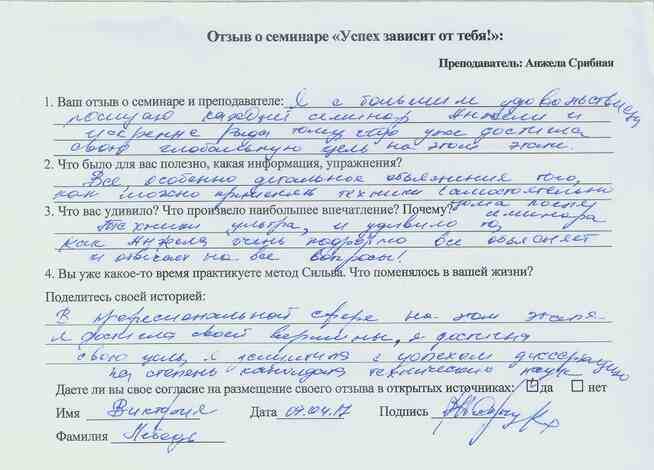 Отзыв о семинаре «Успех зависит от тебя!»:
Преподаватель: Анжела Срибная
1. Ваш отзыв о семинаре и преподавателе: Я с большим удовольствием
посещаю каждый семинар Анжели и
искренне рада тому что уже достигла
свою глобальную цель на этом этапе.
2. Что было для вас полезно, какая информация, упражнения?
Все, особенно детальное объяснение того,
как можно применять техники самостоятельно
дома после семинара
3. Что вас удивило? Что произвело наибольшее впечатление? Почему?
Техники ультра, и удивило то,
как Анжела очень подробно все объясняет
и отвечает на все вопросы!
4. Вы уже какое-то время практикуете метод Сильва. Что поменялось в вашей жизни?
Поделитесь своей историей:
В професиональной сфере на этом этапе
я достигла своей вершины, я достигла
свою цель, я защитила с успехом диссертацию
на степень кандидата технических наук
Даете ли вы свое согласие на размещение своего отзыва в открытых источниках: да нет
Имя Виктория Дата 09.04.17 Подпись
Фамилия Лебедь